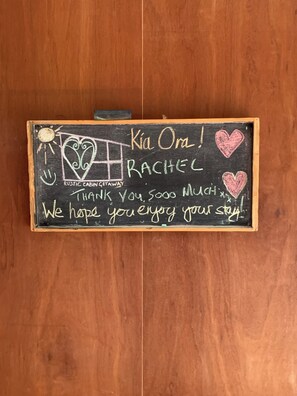 Kia Ora!
RACHEL
RUSTIC CABIN GETAWAY
THANK YOU SOOO MUCH xx
We hope you enjoy your stay!